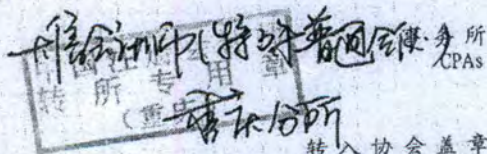 信会计师(特殊普通合伙) 所
CPAs
转所专用章
(重庆
重庆分所
转入协会盖章